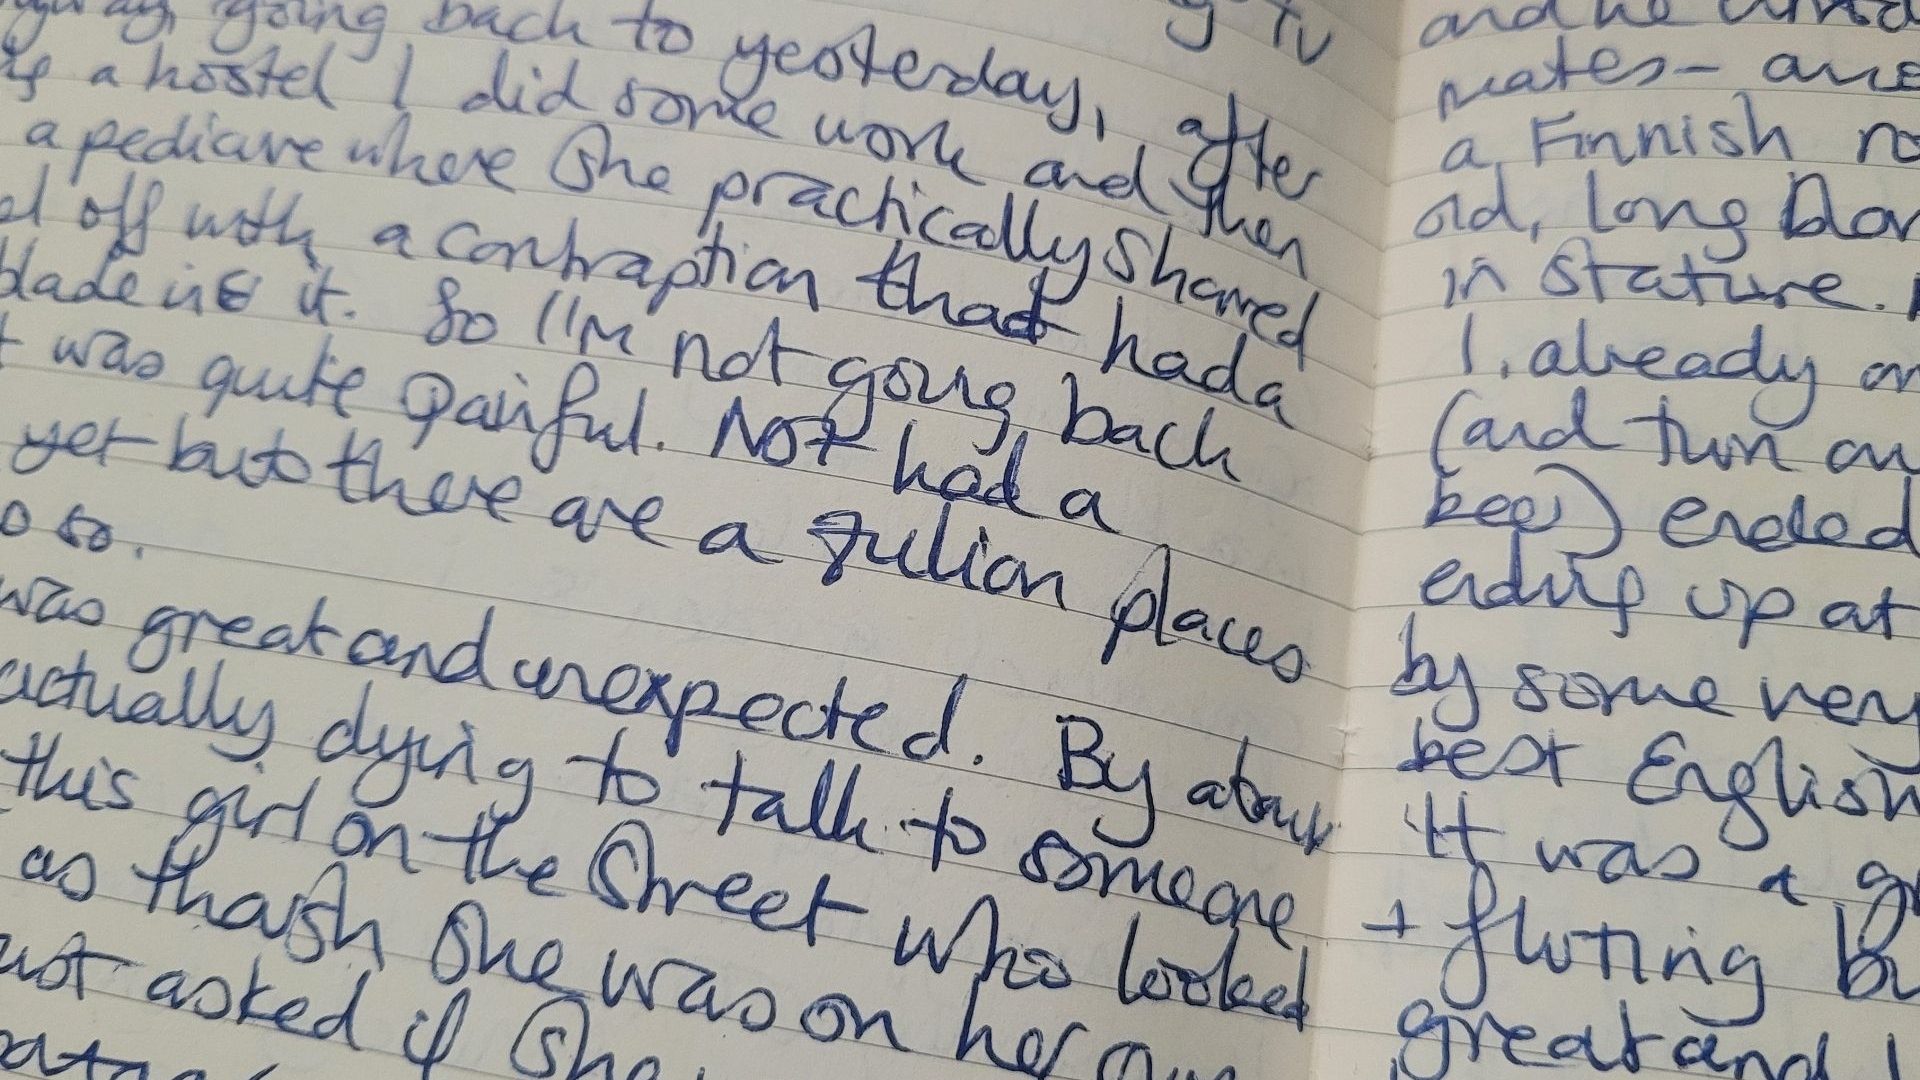 going back to yesterday, after
a hostel I did some work and then
a pedicure where she practically shaved
off with a contraption that had a
blade in it. So I'm not going back
was quite painful. Not had a
yet but there are a zulion places
so.
was great and unexpected. By about
actually dying to talk to someone
this girl on the street who looked
as though she was on her own
asked if she
and he
mates - and
a Finnish
old, long
in stature.
I already
(and turn
beer) ended
ending up at
by some very
best English
It was a
+ flirting
great and I